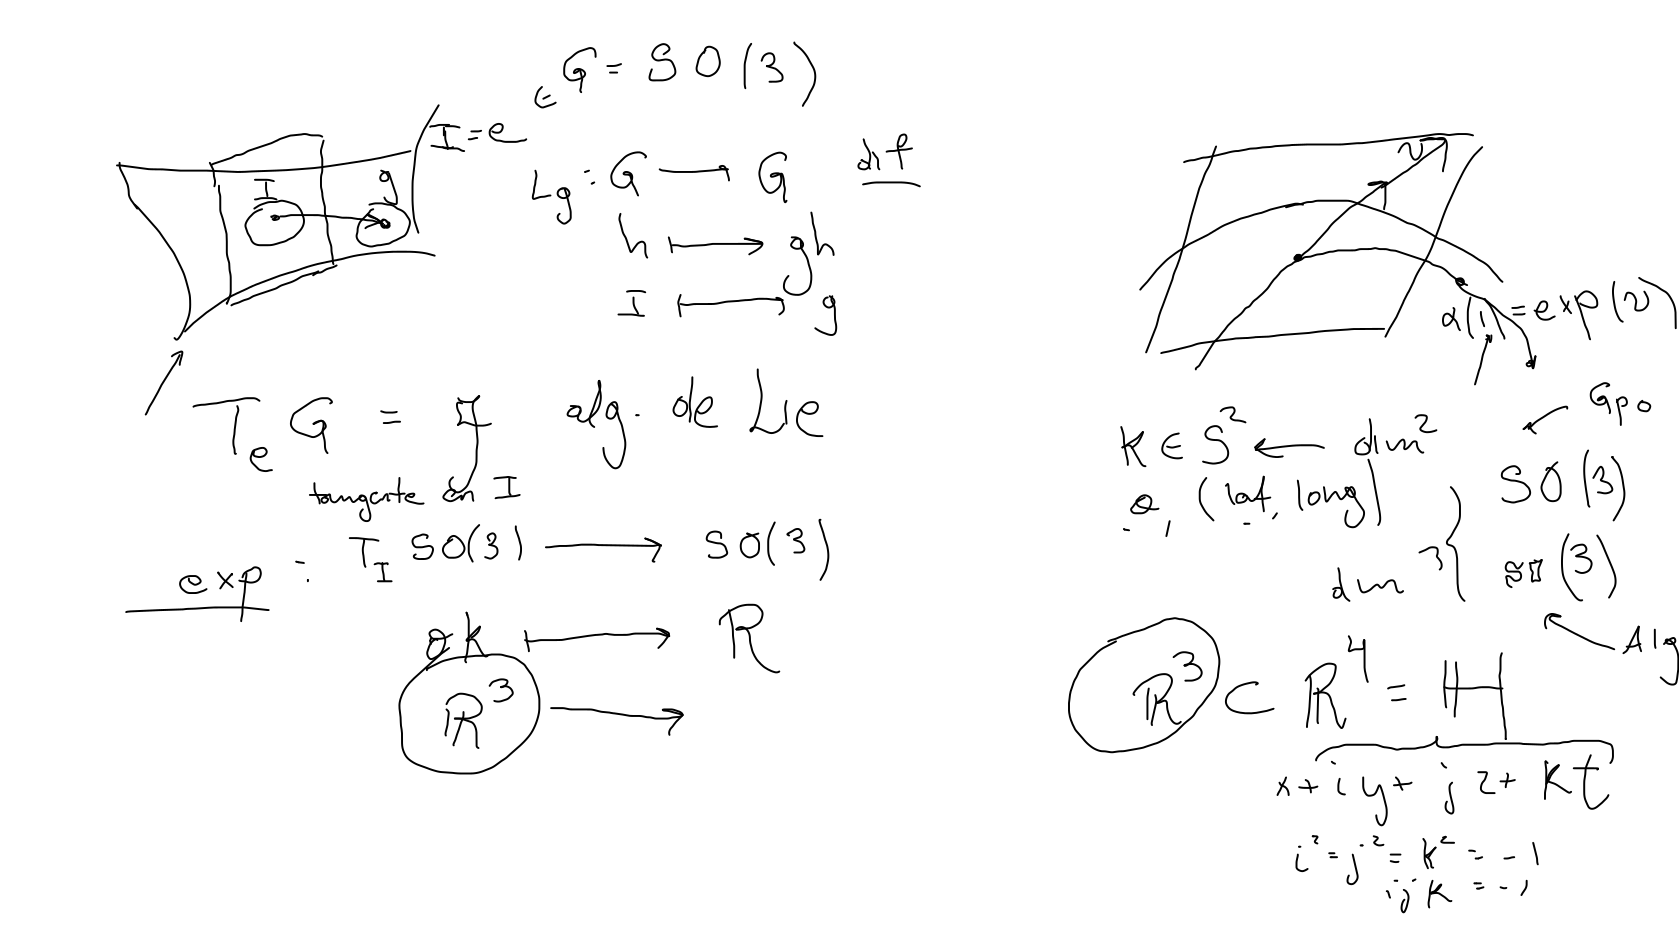 ∈ G = SO(3)
I = e
I g
L_g : G → G dif
h ↦ gh
I ↦ g
T_e G = 𝔤 alg. de Lie
tangente en I
exp : T_I SO(3) → SO(3)
θk ↦ R
ℝ³ →
v
α(1) = exp(v)
Gpo
k ∈ S² ← dim 2
θ, (lat, long)
SO(3)
dim 3 } 𝔰𝔬(3)
Alg
ℝ³ ⊂ ℝ⁴ = ℍ
x + iy + jz + kt
i² = j² = k² = -1
ijk = -1